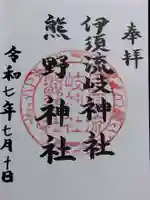 奉拝
伊須流岐神社
熊野神社
令和七年七月十日